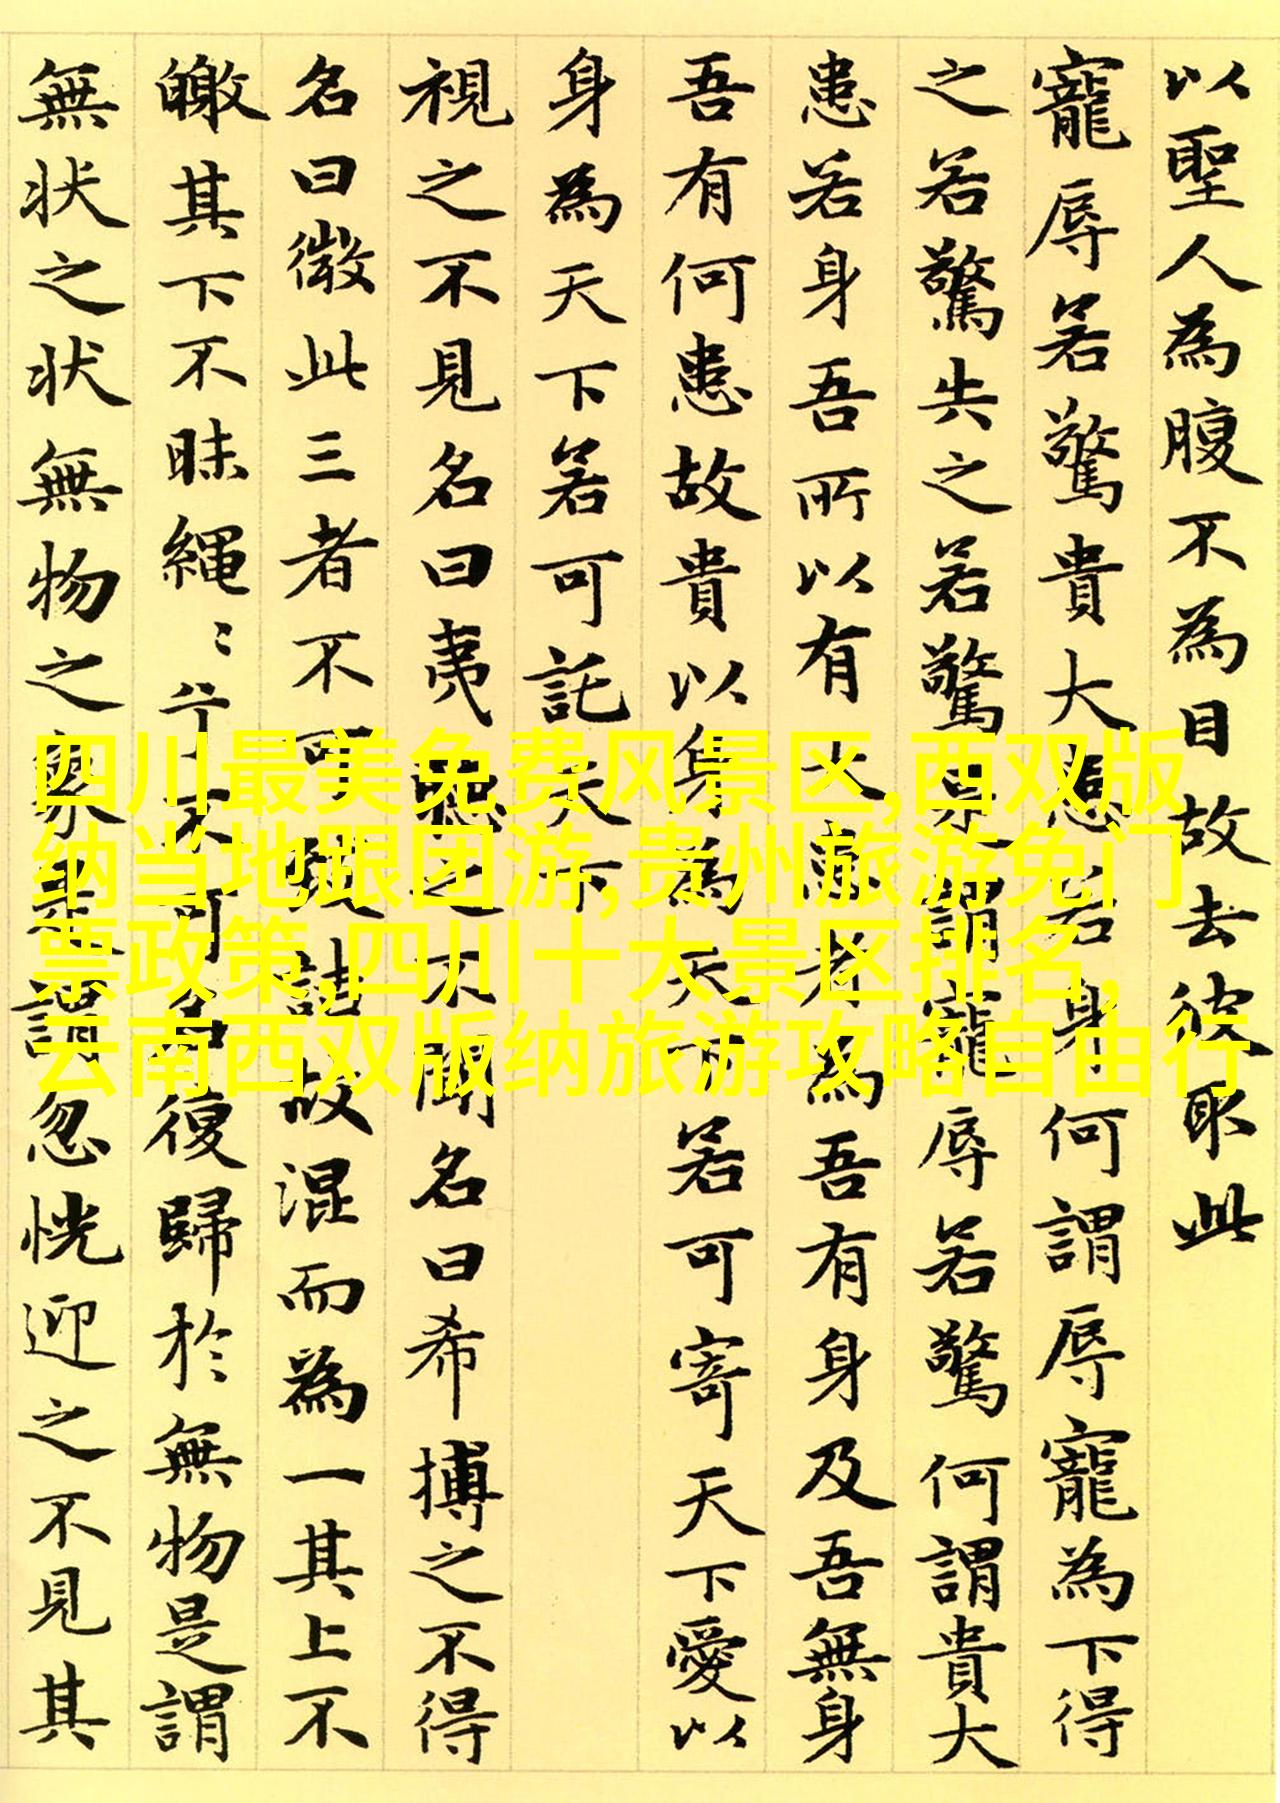 以聖人為腹不為目故去彼取此
寵辱若驚貴大患若身何謂辱寵為下得
之若驚失之若驚是謂寵辱若驚何謂貴大
患若身吾所以有大患者為吾有身及吾無身
吾有何患故貴以身為天下若可寄天下愛以
身為天下若可託天下
視之不見名曰夷聽之不聞名曰希搏之不得
名曰微此三者不可致詰故混而為一其上不
皦其下不昧繩〻兮不可名復歸於無物是謂
無状之状無物之象是謂忽恍迎之不見其
四川最美免费风景区,西双版
纳当地跟团游,贵州旅游免门
票政策,四川十大景区排名,
云南西双版纳旅游攻略自由行